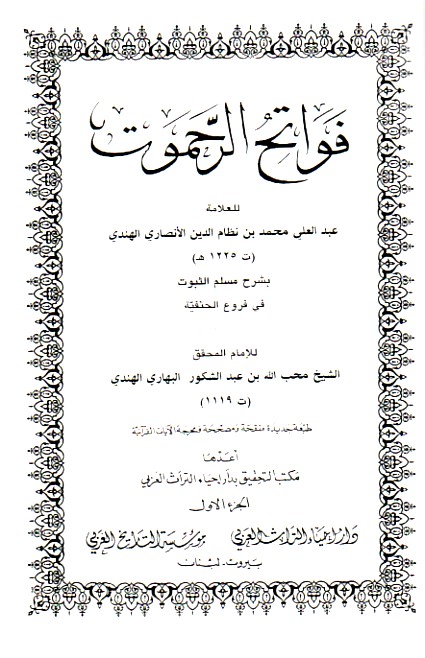 فَوَاتِحُ الرَّحَمُوت
للعلامة
عبد العلي محمد بن نظام الدين الأنصاري الهندي
(ت ١٢٢٥ هـ)
بشرح مسلم الثبوت
في فروع الحنفية
للإمام المحقق
الشيخ محب الله بن عبد الشكور البهاري الهندي
(ت ١١١٩)
طبعة جديدة منقحة ومصححة ومخرجة الآيات القرآنية
أعدها
مكتب التحقيق بدار إحياء التراث العربي
الجزء الاول
دار إحياء التراث العربي مؤسسة التاريخ العربي
بيروت - لبنان